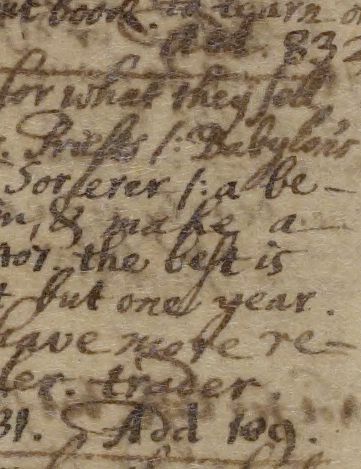 book. to learn
Add. 83
for what they sell
Priests /: Babylons
Sorserer /: a be-
, & make a
. the best is
but one year.
have more re-
. trader.
31. Add 109.